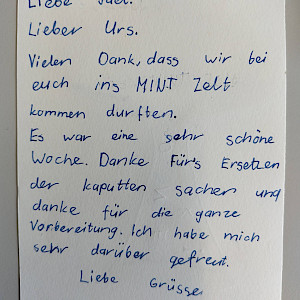 Liebe
Lieber Urs.
Vielen Dank, dass wir bei
euch ins MINT Zelt
kommen durften.
Es war eine sehr schöne
Woche. Danke für's Ersetzen
der kaputten sachen und
danke für die ganze
Vorbereitung. Ich habe mich
sehr darüber gefreut.
Liebe Grüsse